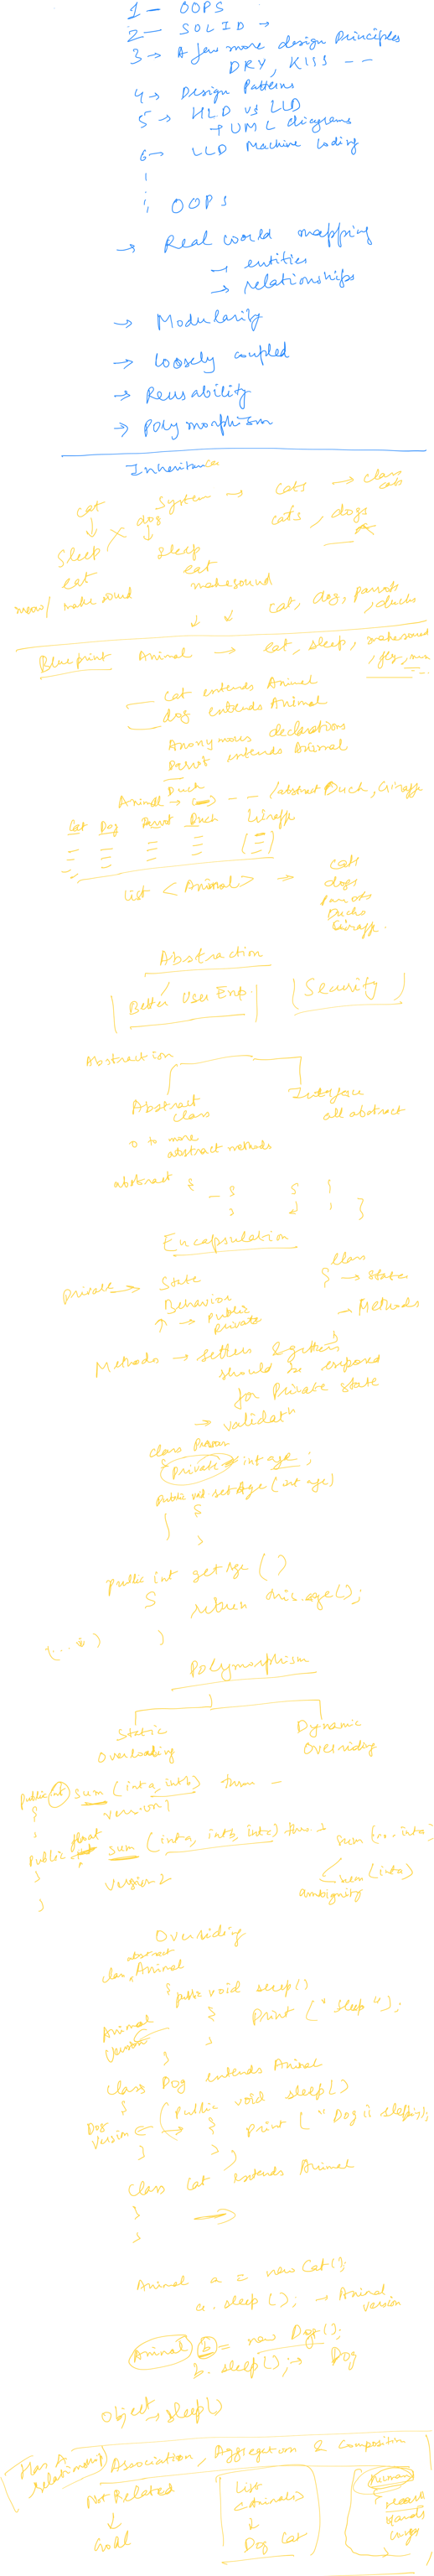 1 - OOPS
2 - SOLID →
3 → A few more design Principles
DRY, KISS - -
4 → Design Patterns
5 → HLD vs LLD
→ UML diagrams
6 → LLD Machine Coding
OOPS
→ Real world mapping
→ entities
→ relationships
→ Modularity
→ loosely coupled
→ Reusability
→ Polymorphism
Inheritance
System → cats → class cats
cat dog cats, dogs
Sleep sleep
eat eat
meow/ make sound makesound
cat, dog, parrots, ducks
Blueprint Animal → eat, sleep, makesound, fly,
cat extends Animal
dog extends Animal
Anonymous declarations
Parrot extends Animal
Duck
Animal → - - /abstract Duck, Giraffe
Cat Dog Parrot Duck Giraffe
List <Animal> → cats
dogs
parrots
Ducks
Giraffe.
Abstraction
Better User Exp. Security
Abstraction
Abstract class Interface
all abstract
0 to more
abstract methods
abstract {
}
Encapsulation
private → State class
{ → state
Behavior
→ public → Methods
private
Methods → setters & getters
should be exposed
for Private state
→ validatn
class Person
{ private int age;
public void setAge (int age)
{
}
public int getAge ()
{ return this.age();
}
Polymorphism
Static Dynamic
Overloading Overriding
public int sum (int a, int b)
{ version 1
}
public float int sum (int a, int b, int c) sum (int a)
} version 2 sum (int a)
} ambiguity
Overriding
abstract
class Animal
{ public void sleep()
Animal { Print ("Sleep");
Version }
}
Class Dog extends Animal
{ public void sleep()
Dog Version ← { print ("Dog is sleeping);
} }
Class Cat extends Animal
}
}
Animal a = new Cat();
a.sleep(); → Animal version
Animal b = new Dog();
b.sleep(); → Dog
Object → sleep()
Has A relationship Association, Aggregation & Composition
Not Related List Human
↓ <Animals>
↓
Dog Cat Hands